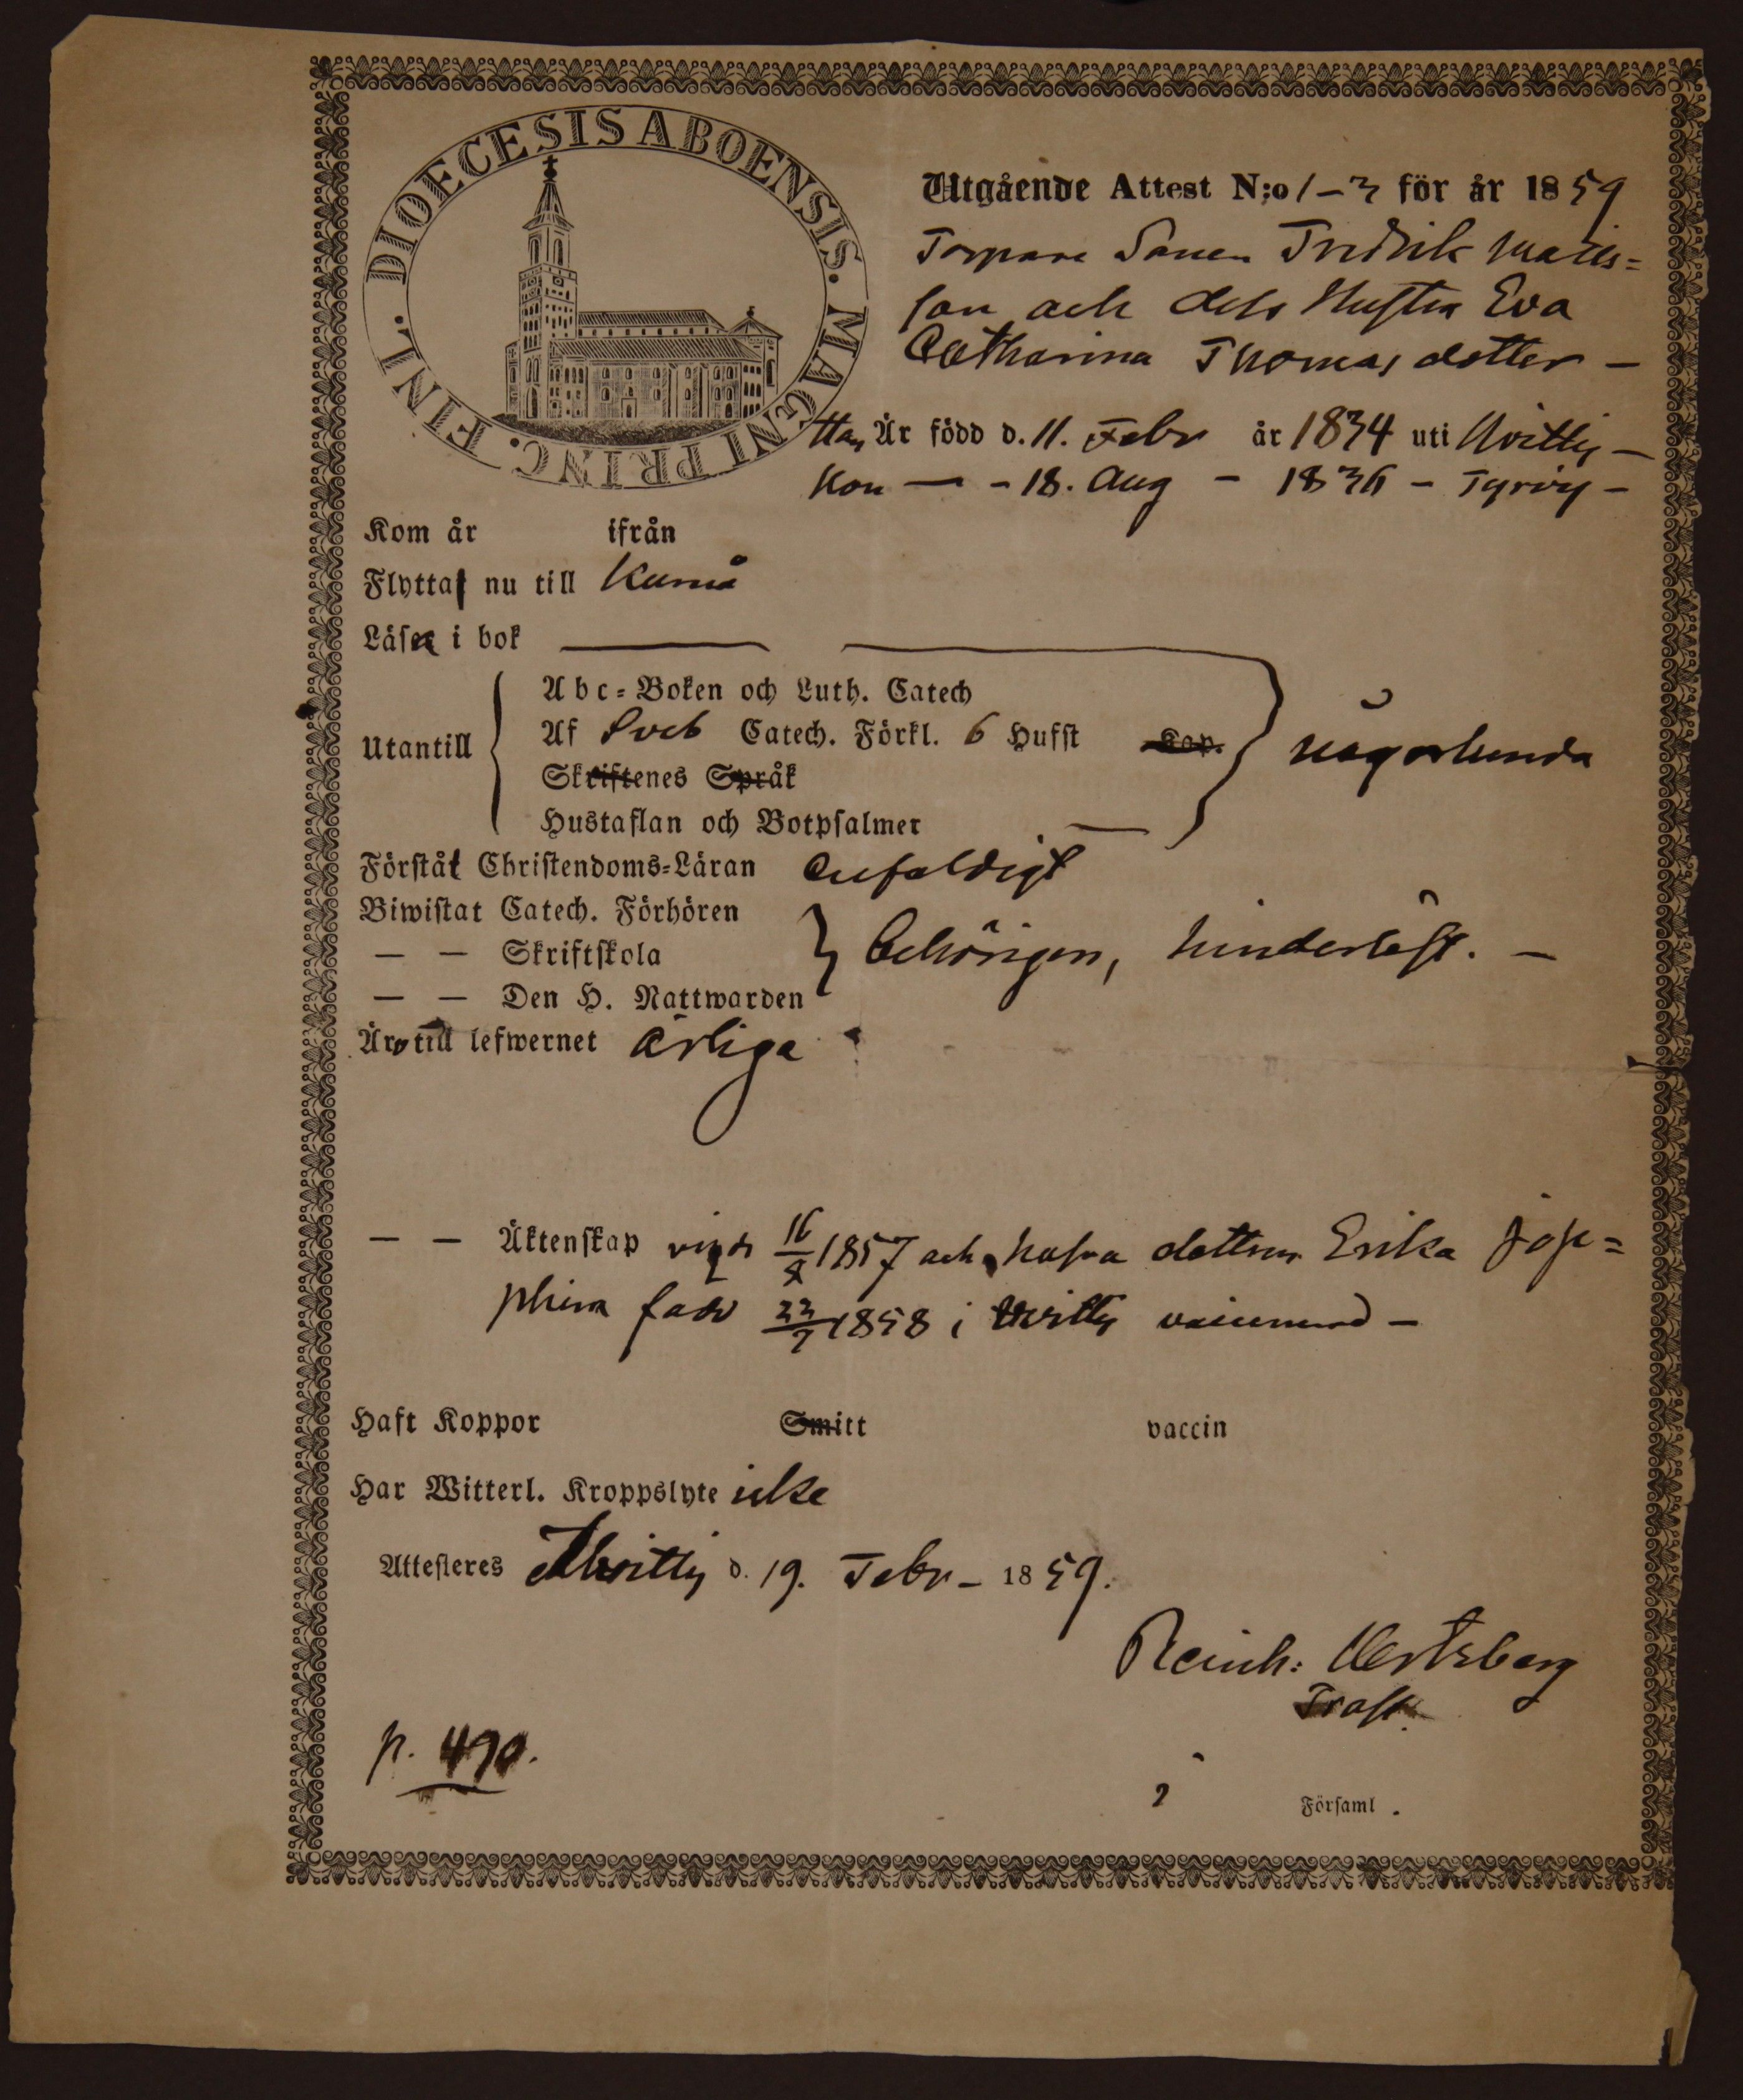 DIOECESIS ABOENSIS. MAGNI PRINC. FINL.
Utgående Attest N:o 1-3 för år 1859
Torpare Sonen Fredrik Matts=
son och dess Hustru Eva
Catharina Thomasdotter –
Han Är född d. 11. Febr år 1834 uti Hvittis –
Hon — - 18. Aug - 1836 - Tyrvis -
Kom år ifrån
Flytta nu till Kumo
Läsa i bok
Abc=Boken och Luth. Catech
Utantill Af Sveb Catech. Förkl. 6 Hufst Kap. någorlunda
Skriftenes Språk
Hustaflan och Botpsalmer
Förstå Christendoms=Läran enfaldigt
Biwistat Catech. Förhören
— — Skriftskola behörigen, hinderlöst. –
— — Den H. Nattwarden
Äro till lefwernet ärliga
— — Äktenskap vigde 16/8 1857 och hafva dottren Erika Jose=
phina född 23/7 1858 i Hvittis vaccinerad –
Haft Koppor Smitt vaccin
Har Witterl. Kroppslyte icke
Attesteres Hvittis d. 19. Febr – 1859.
Reinh: Hertzberg
Prost.
p. 490.
Församl.